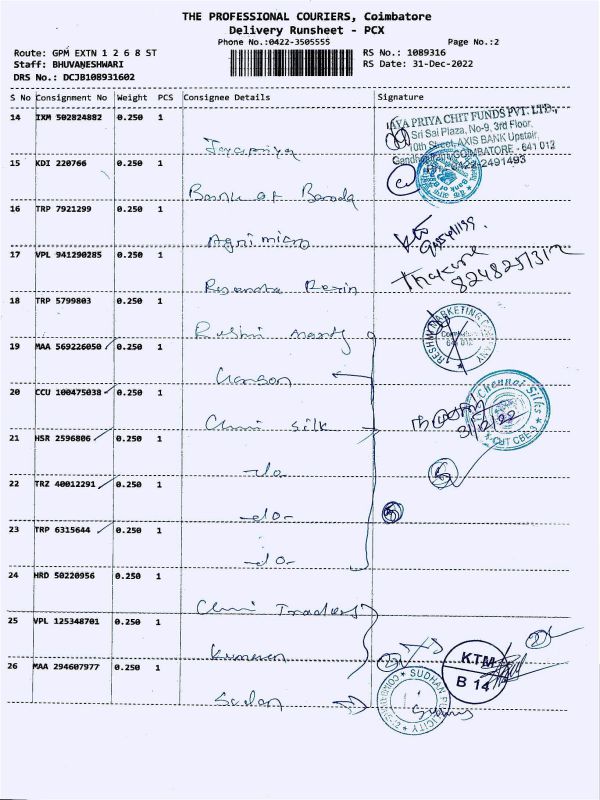 THE PROFESSIONAL COURIERS, Coimbatore
Delivery Runsheet - PCX
Phone No.:0422-3505555 Page No.:2
Route: GPM EXTN 1 2 6 8 ST RS No.: 1089316
Staff: BHUVANESHWARI RS Date: 31-Dec-2022
DRS No.: DCJB108931602
S No Consignment No Weight PCS Consignee Details Signature
14 IXM 502824882 0.250 1
JAYA PRIYA CHIT FUNDS PVT. LTD.,
Sri Sai Plaza, No-9, 3rd Floor,
10th Street, AXIS BANK Upstair,
COIMBATORE - 641 012
0422-2491493
Jayapriya
15 KDI 220766 0.250 1
Bank of Baroda
16 TRP 7921299 0.250 1
Agni micro
17 VPL 941290285 0.250 1
18 TRP 5799803 0.250 1
RESHMI MARKETING COMPANY
19 MAA 569226050 0.250 1
20 CCU 100475038 0.250 1
Chennai Silks
CUT CBE-3
31/12/22
silk
21 HSR 2596806 0.250 1
-do-
22 TRZ 40012291 0.250 1
-do-
23 TRP 6315644 0.250 1
-do-
24 HRD 50220956 0.250 1
Traders
25 VPL 125348701 0.250 1
KTM
B 14
26 MAA 294607977 0.250 1
SUDHAN PUBLICITY